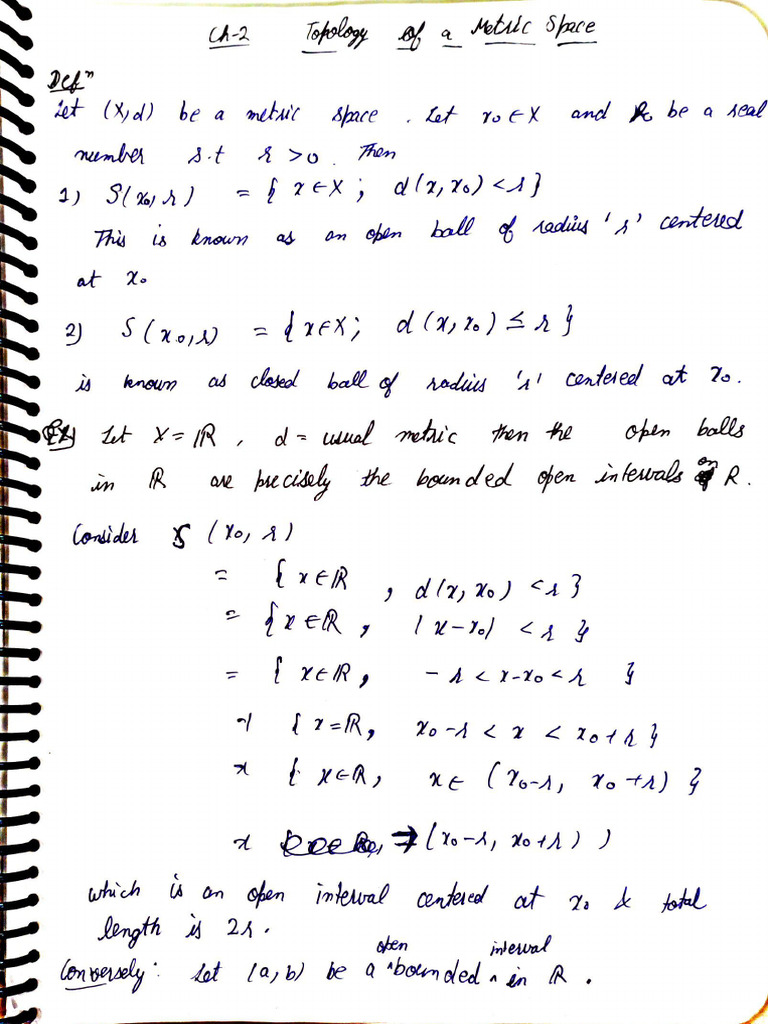 Ch-2 Topology of a Metric Space
Defⁿ
Let (X,d) be a metric space. Let x₀ ∈ X and r be a real
number s.t r > 0. Then
1) S(x₀, r) = { x ∈ X ; d(x, x₀) < r}
This is known as an open ball of radius 'r' centered
at x₀
2) S(x₀, r) = { x ∈ X; d(x, x₀) ≤ r }
is known as closed ball of radius 'r' centered at x₀.
Ex) Let X = ℝ, d = usual metric then the open balls
in ℝ are precisely the bounded open intervals on R.
Consider S (x₀, r)
= { x ∈ ℝ , d(x, x₀) < r }
= { x ∈ ℝ, |x-x₀| < r }
= { x ∈ ℝ, -r < x-x₀ < r }
{ x = ℝ, x₀-r < x < x₀+r }
{ x ∈ ℝ, x ∈ (x₀-r, x₀+r) }
⇒ (x₀-r, x₀+r) )
which is an open interval centered at x₀ & total
length is 2r.
Conversely: Let (a,b) be a open bounded interval in ℝ.